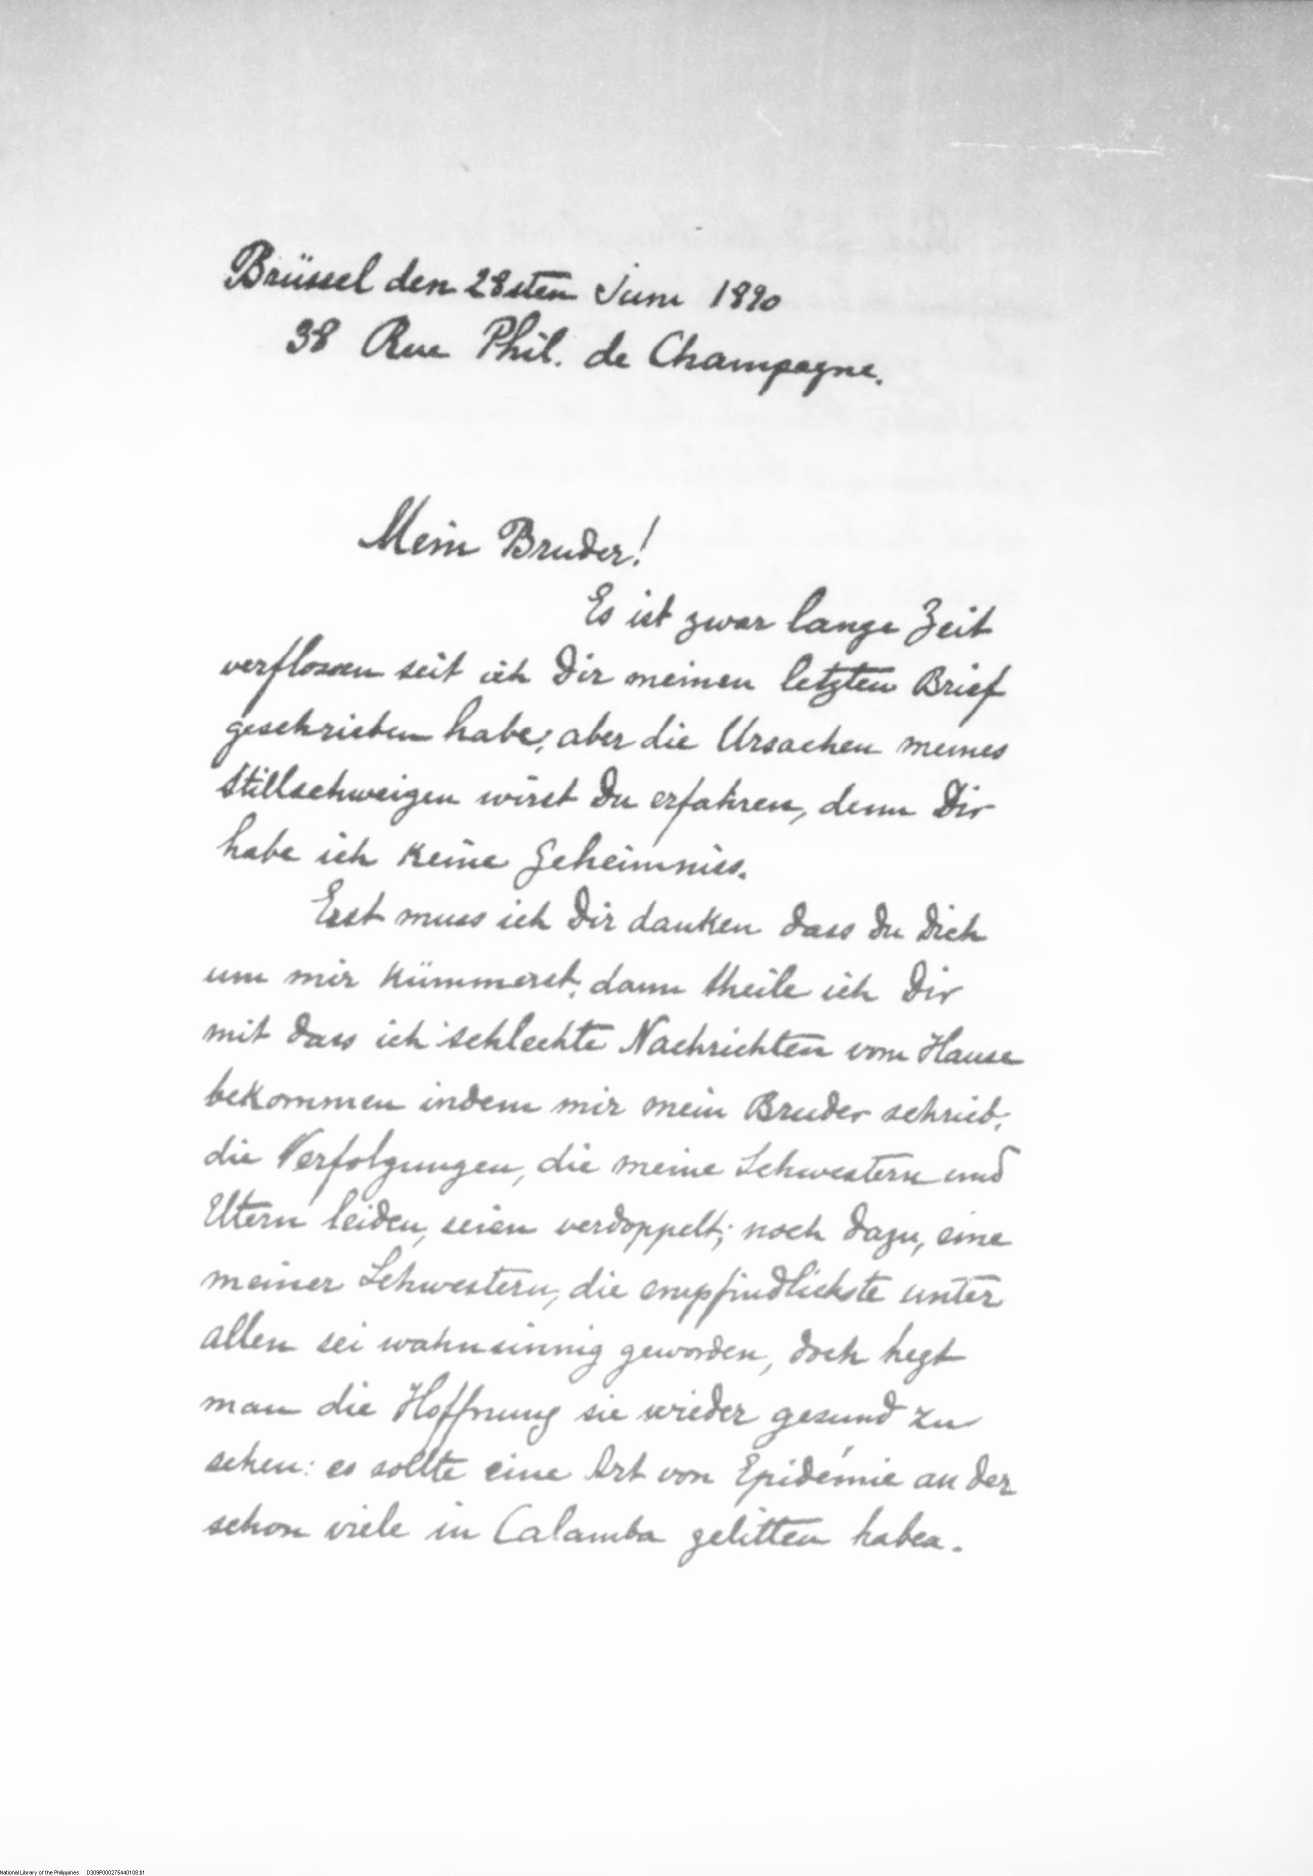 Brüssel den 28sten Juni 1890
38 Rue Phil. de Champagne.
Mein Bruder!
Es ist zwar lange Zeit
verflossen seit ich Dir meinen letzten Brief
geschrieben habe; aber die Ursachen meines
Stillschweigen wirst Du erfahren, denn Dir
habe ich keine Geheimniss.
Erst muss ich Dir danken dass Du Dich
um mir kümmerst; dann theile ich Dir
mit dass ich schlechte Nachrichten vom Hause
bekommen indem mir mein Bruder schrieb,
die Verfolgungen, die meine Schwestern und
Eltern leiden, seien verdoppelt; noch dazu, eine
meiner Schwestern, die empfindlichste unter
allen sei wahnsinnig geworden, doch hegt
man die Hoffnung sie wieder gesund zu
sehen: es sollte eine Art von Epidémie an der
schon viele in Calamba gelitten haben.
National Library of the Philippines